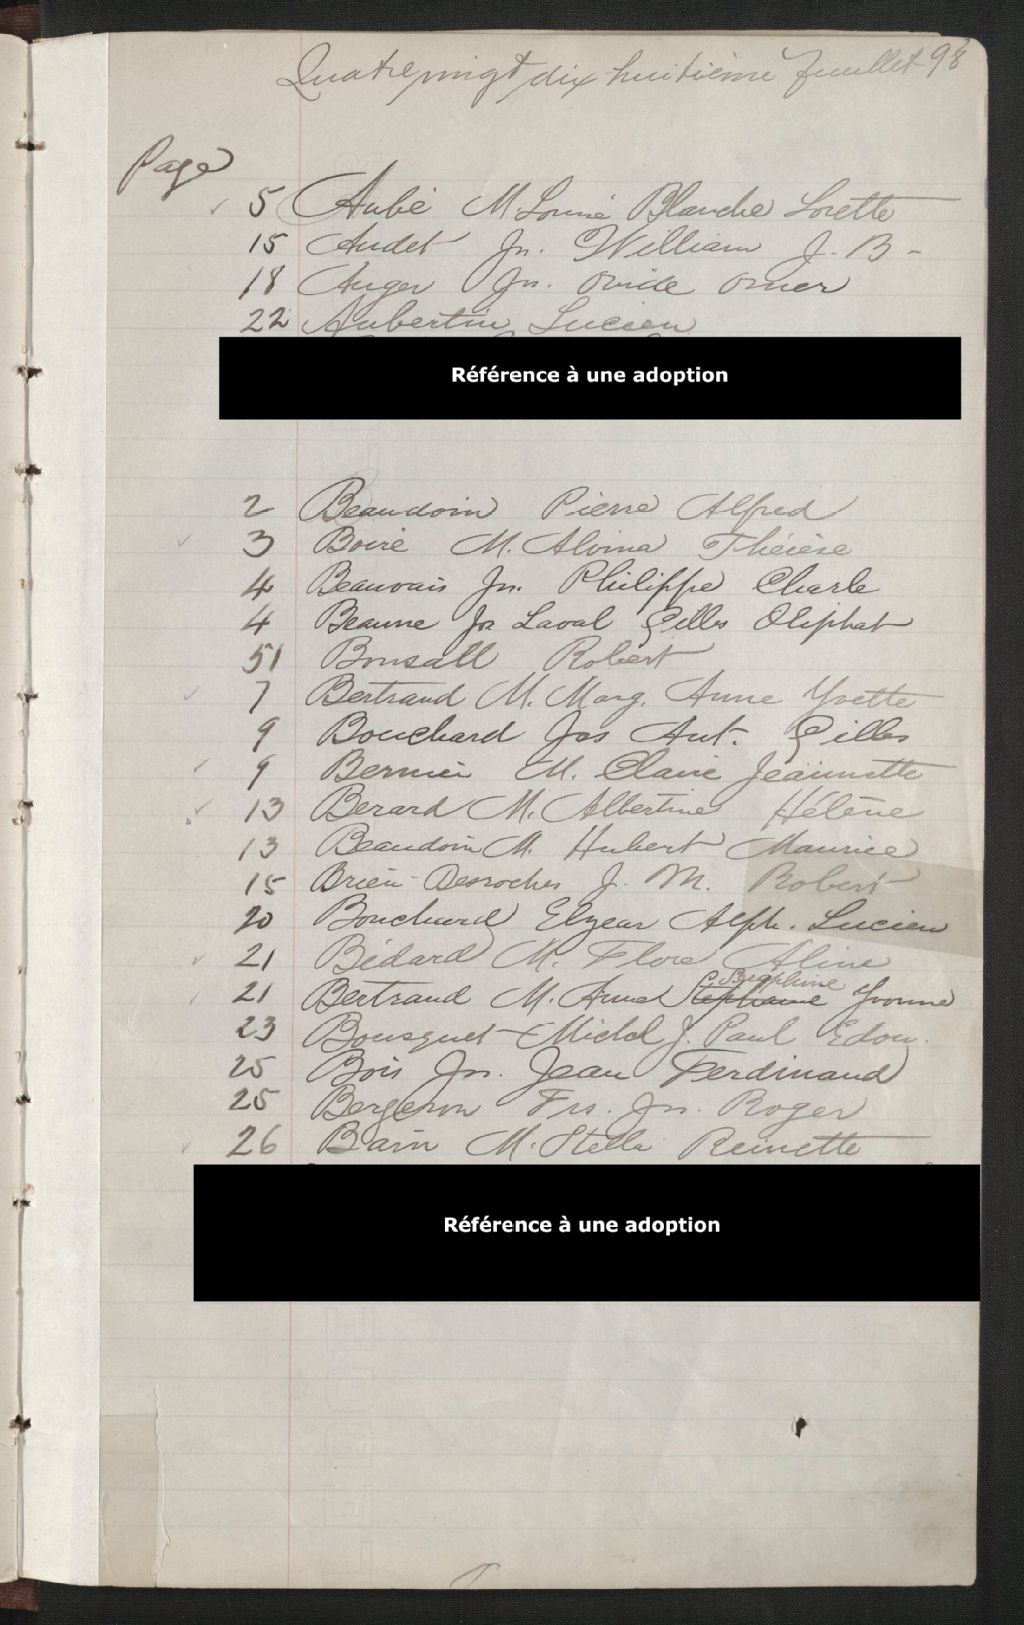 Quatrevingt dix huitième feuillet 98
Page
5 Aubé M Louise Blanche Lorette
15 Audet Jos. William J. B -
18 Auger Jos. Ovide Omer
22 Aubertin Lucien
Référence à une adoption
2 Beaudoin Pierre Alfred
3 Boire M. Alvina Thérèse
4 Beauvais Jos. Philippe Charle
4 Beaune Jos Laval Gilles Oliphat
51 Bonsall Robert
7 Bertrand M. Marg. Anne Yvette
9 Bouchard Jos Ant. Gilles
9 Bernier M. Claire Jeannette
13 Berard M. Albertine Hélène
13 Beaudoin M. Hubert Maurice
15 Brien-Desrochers J. M. Robert
20 Bouchard Elzear Alph. Lucien
21 Bédard M. Flore Aline
Seraphine
21 Bertrand M. Armel Stephanie Yvonne
23 Bousquet Michel J. Paul Edou.
25 Bois Jos. Jean Ferdinand
25 Bergeron Frs. Jos. Roger
26 Bain M. Stella Reinette
Référence à une adoption